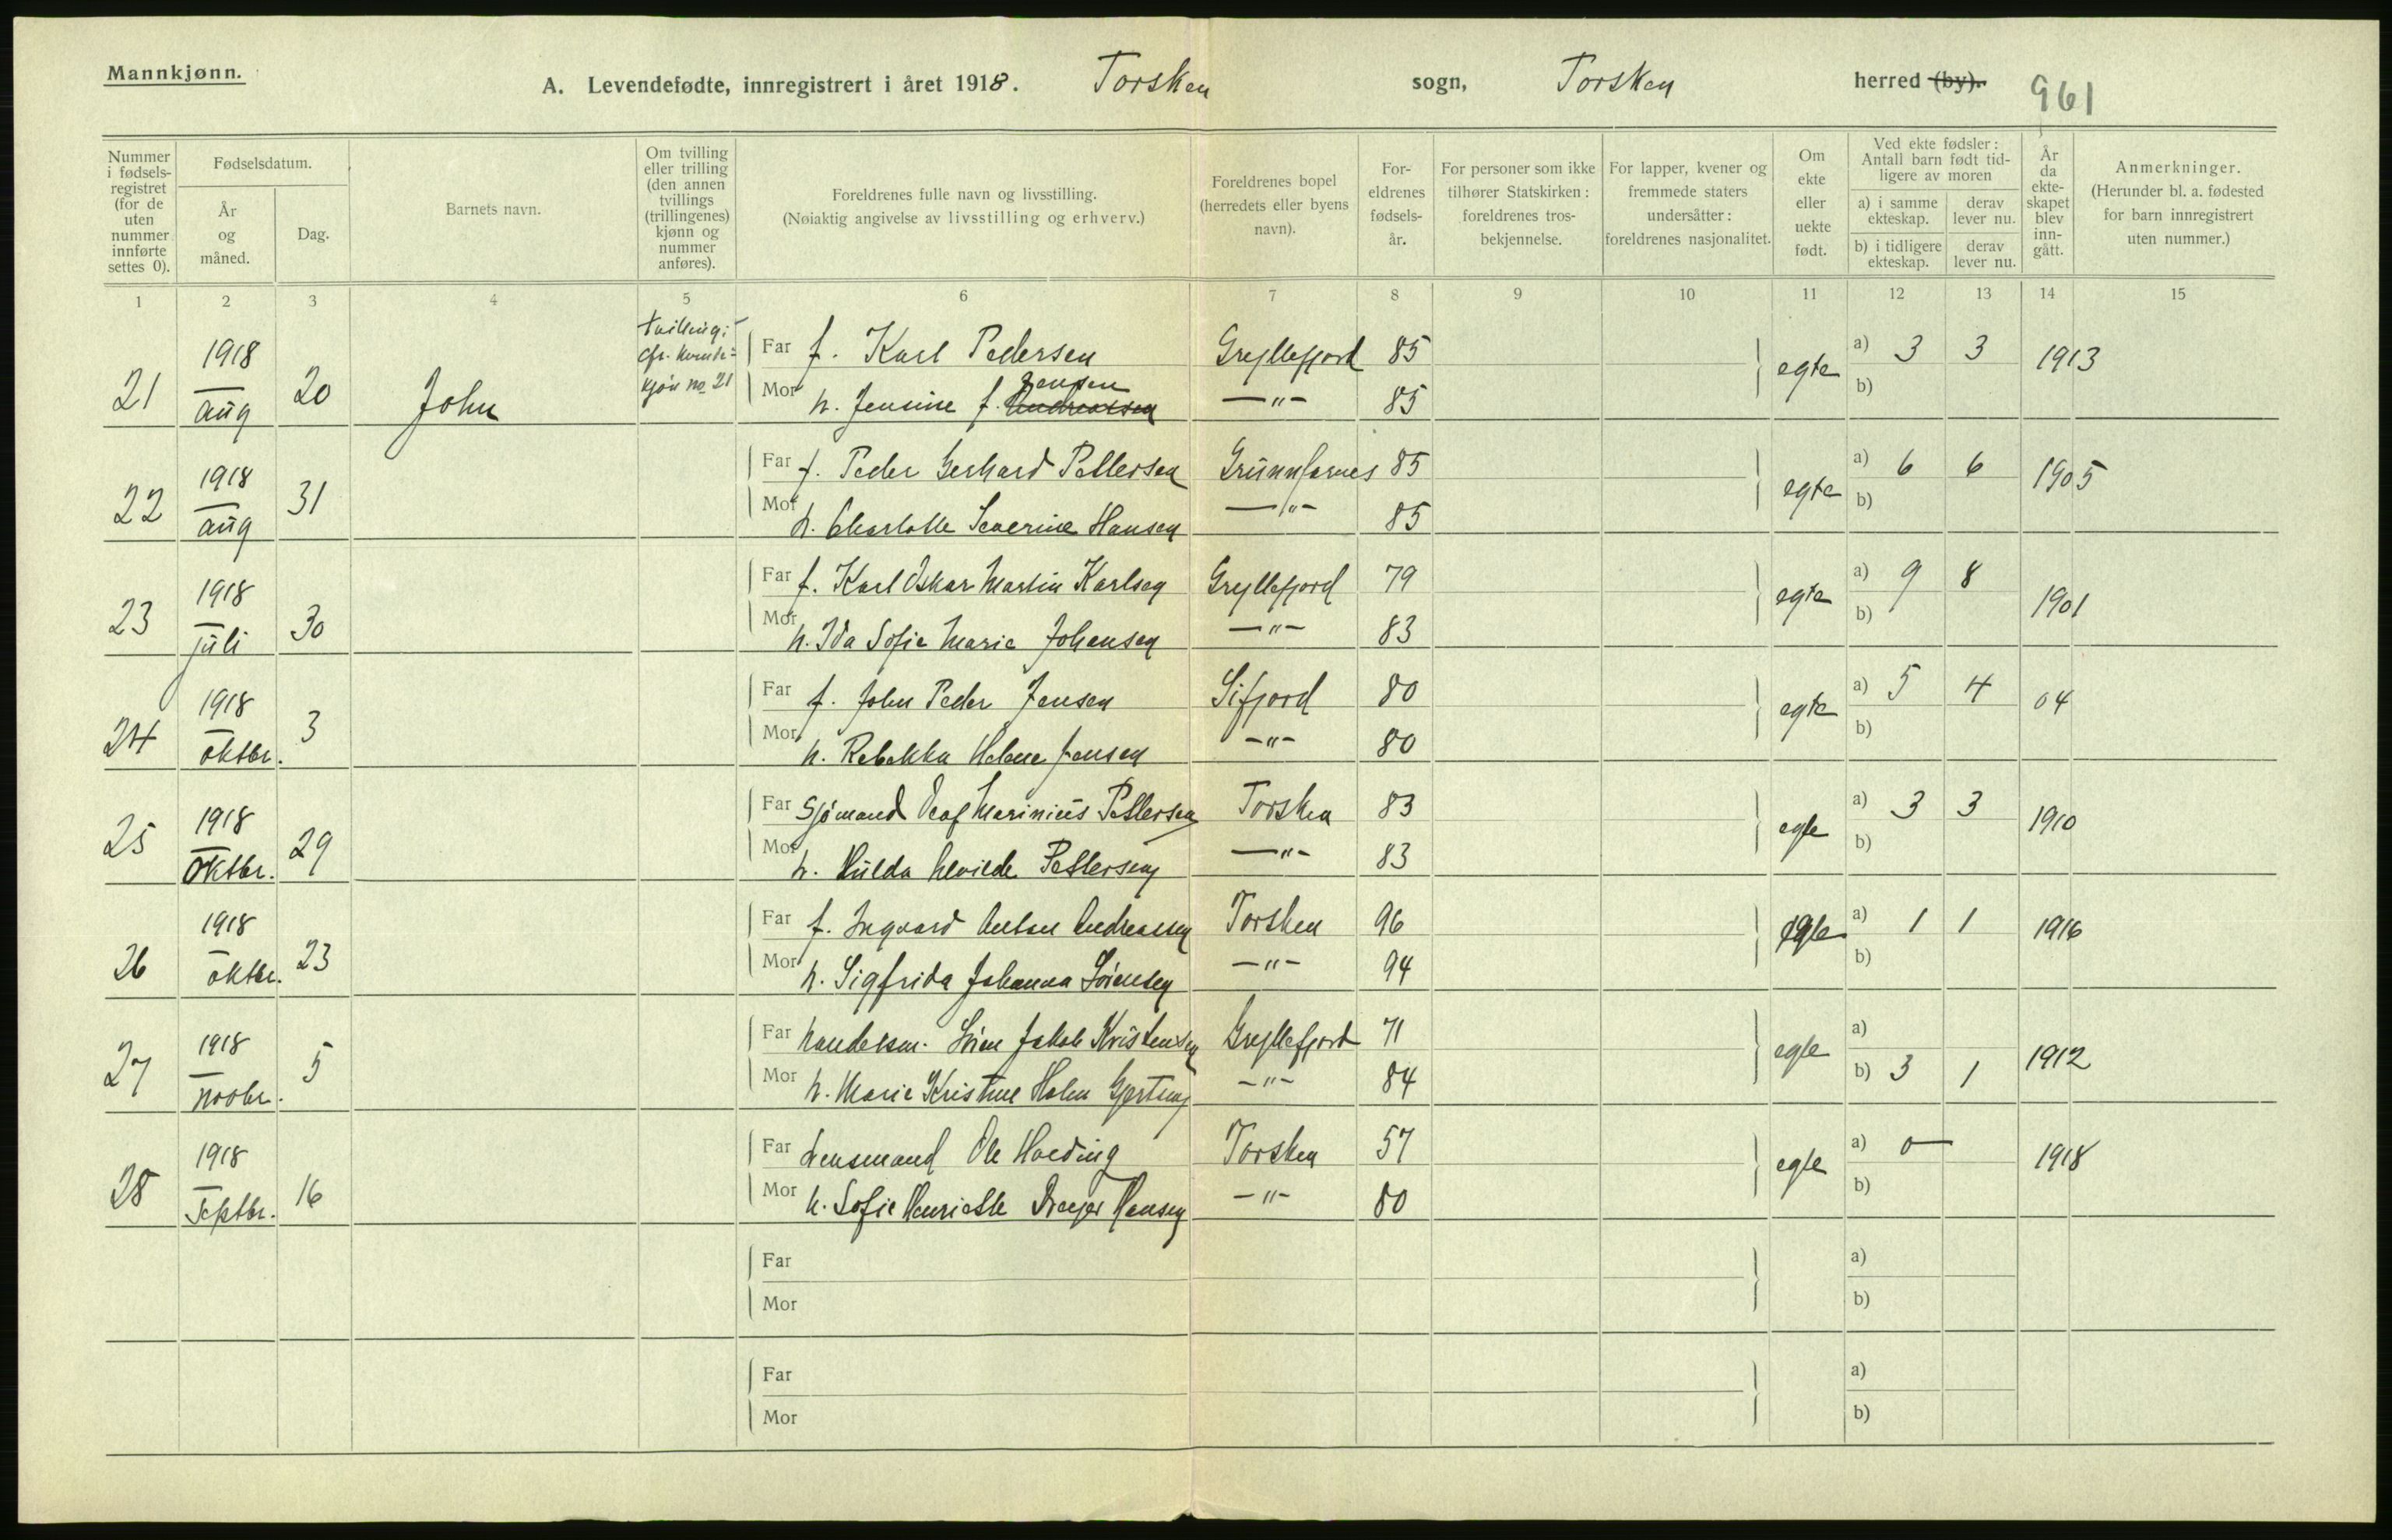 Mannkjønn.
A. Levendefødte, innregistrert i året 1918. Torsken sogn, Torsken herred (by). 961
Nummer i fødselsregistret (for de uten nummer innførte settes 0).
Fødselsdatum.
År og måned.
Dag.
Barnets navn.
Om tvilling eller trilling (den annen tvillings (trillingenes) kjønn og nummer anføres).
Foreldrenes fulle navn og livsstilling.
(Nøiaktig angivelse av livsstilling og erhverv.)
Foreldrenes bopel (herredets eller byens navn).
For-eldrenes fødsels-år.
For personer som ikke tilhører Statskirken: foreldrenes tros-bekjennelse.
For lapper, kvener og fremmede staters undersåtter: foreldrenes nasjonalitet.
Om ekte eller uekte født.
Ved ekte fødsler: Antall barn født tid-ligere av moren
a) i samme ekteskap. derav lever nu.
b) i tidligere ekteskap. derav lever nu.
År da ekte-skapet blev inn-gått.
Anmerkninger.
(Herunder bl. a. fødested for barn innregistrert uten nummer.)
1 2 3 4 5 6 7 8 9 10 11 12 13 14 15
21 1918 aug 20 John tvilling: cfr. kvinde-kjøn no 21
Far f. Karl Pedersen Gryllefjord 85 egte a) 3 3 1913
Mor h. Jensine f. Andreassen Jensen —"— 85 b)
22 1918 aug 31
Far f. Peder Gerhard Pettersen Grunnfarnes 85 egte a) 6 6 1905
Mor h. Charlotte Severine Hansen —"— 85 b)
23 1918 juli 30
Far f. Karl Oskar Martin Karlsen Gryllefjord 79 egte a) 9 8 1901
Mor h. Ida Sofie Marie Johansen —"— 83 b)
24 1918 oktbr. 3
Far f. John Peder Jensen Sifjord 80 egte a) 5 4 04
Mor h. Rebekka Helene Jensen —"— 80 b)
25 1918 Oktbr. 29
Far Sjømand Olaf Marinius Pettersen Torsken 83 egte a) 3 3 1910
Mor h. Hulda Alvilde Pettersen —"— 83 b)
26 1918 oktbr. 23
Far f. Ingvard Anton Andreassen Torsken 96 egte a) 1 1 1916
Mor h. Sigfrida Johanna Sørensen —"— 94 b)
27 1918 novbr. 5
Far Handelsm. Søren Jakob Kristensen Gryllefjord 71 egte a) 1912
Mor h. Marie Kristine Holm Gjertsen —"— 84 b) 3 1
28 1918 Septbr. 16
Far Lensmand Ole Hveding Torsken 57 egte a) 0 — 1918
Mor h. Sofie Henriette Dreyer Hansen —"— 80 b)
Far a)
Mor b)
Far a)
Mor b)